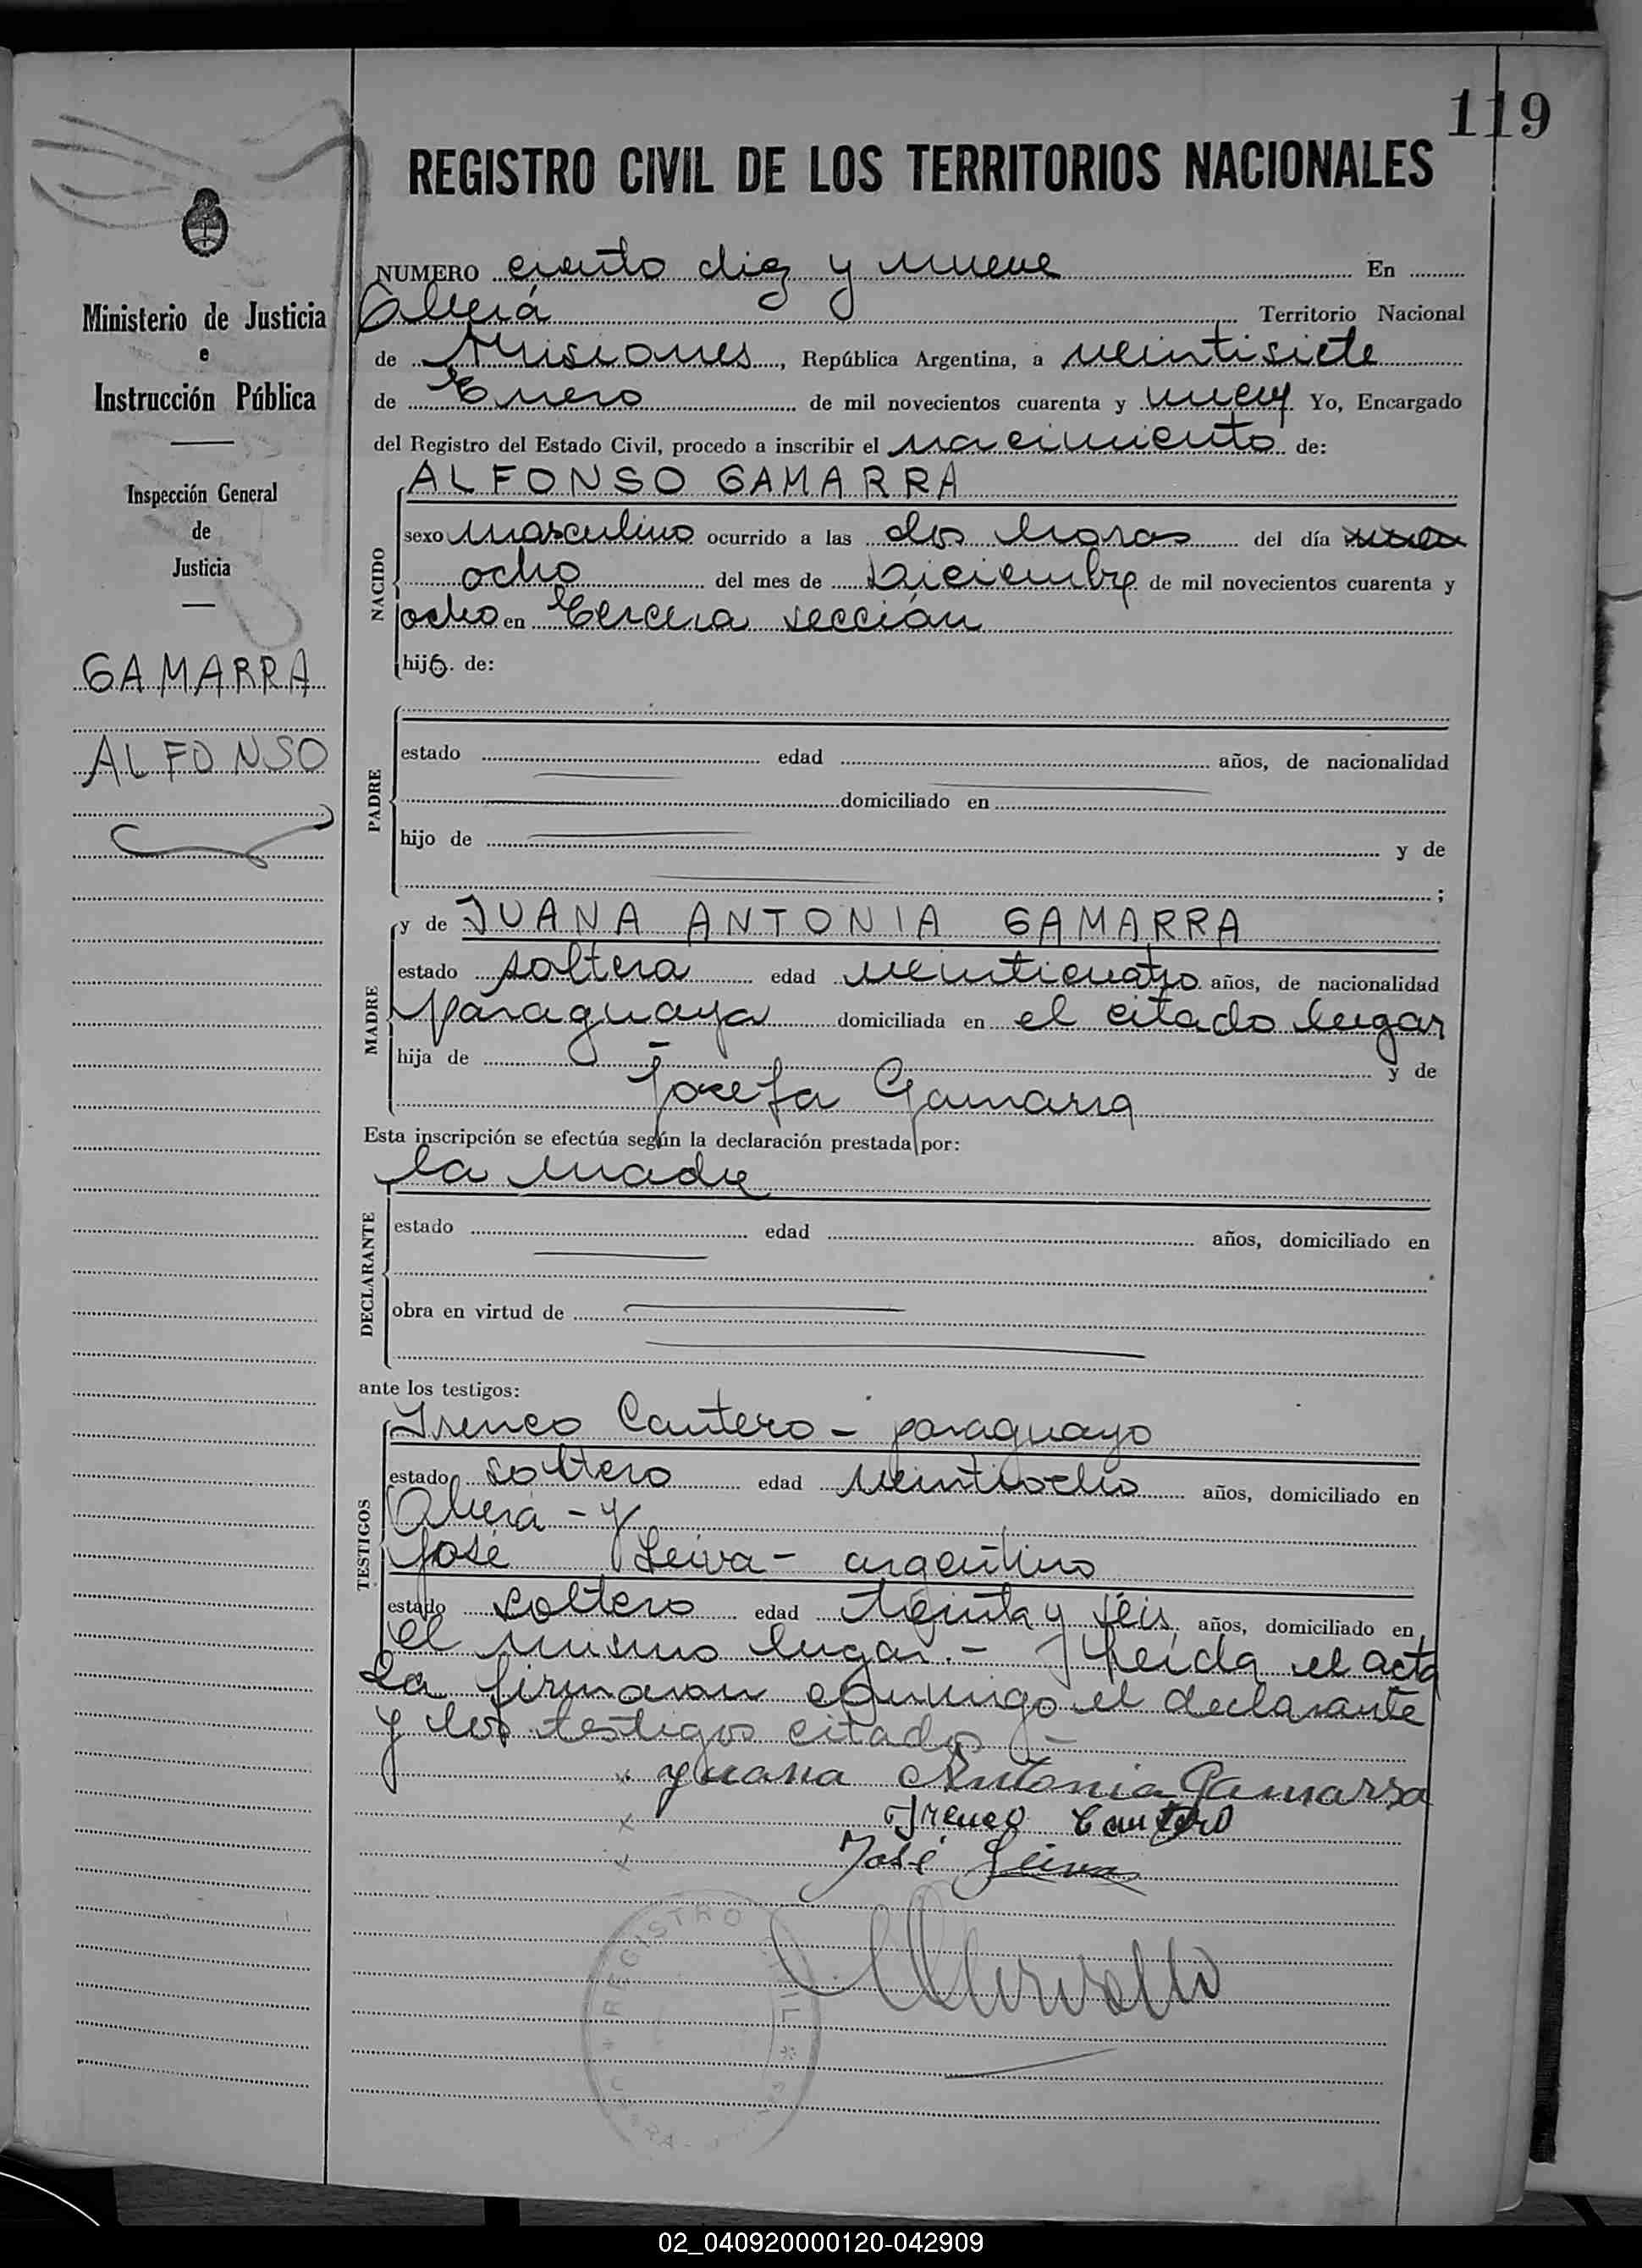 119
REGISTRO CIVIL DE LOS TERRITORIOS NACIONALES
Ministerio de Justicia
e
Instrucción Pública
Inspección General
de
Justicia
GAMARRA
ALFONSO
NUMERO ciento diez y nueve En
Oberá Territorio Nacional
de Misiones, República Argentina, a veintisiete
de Enero de mil novecientos cuarenta y nueve Yo, Encargado
del Registro del Estado Civil, procedo a inscribir el nacimiento de:
ALFONSO GAMARRA
NACIDO
sexo masculino ocurrido a las dos horas del día
ocho del mes de Diciembre de mil novecientos cuarenta y
ocho en tercera sección
hijo. de:
PADRE
estado edad años, de nacionalidad
domiciliado en
hijo de y de
;
MADRE
y de JUANA ANTONIA GAMARRA
estado soltera edad veinticuatro años, de nacionalidad
paraguaya domiciliada en el citado lugar
hija de y de
Josefa Gamarra
Esta inscripción se efectúa según la declaración prestada por:
la madre
DECLARANTE
estado edad años, domiciliado en
obra en virtud de
ante los testigos:
TESTIGOS
Ireneo Cantero - paraguayo
estado soltero edad veintiocho años, domiciliado en
Oberá - y
José Leiva - argentino
estado soltero edad treinta y séis años, domiciliado en
el mismo lugar.- Leida el acta
la firmaron conmigo el declarante
y los testigos citados -
x yuana Antonia Gamarra
x Ireneo Cantero
x José Leiva
REGISTRO
02_040920000120-042909